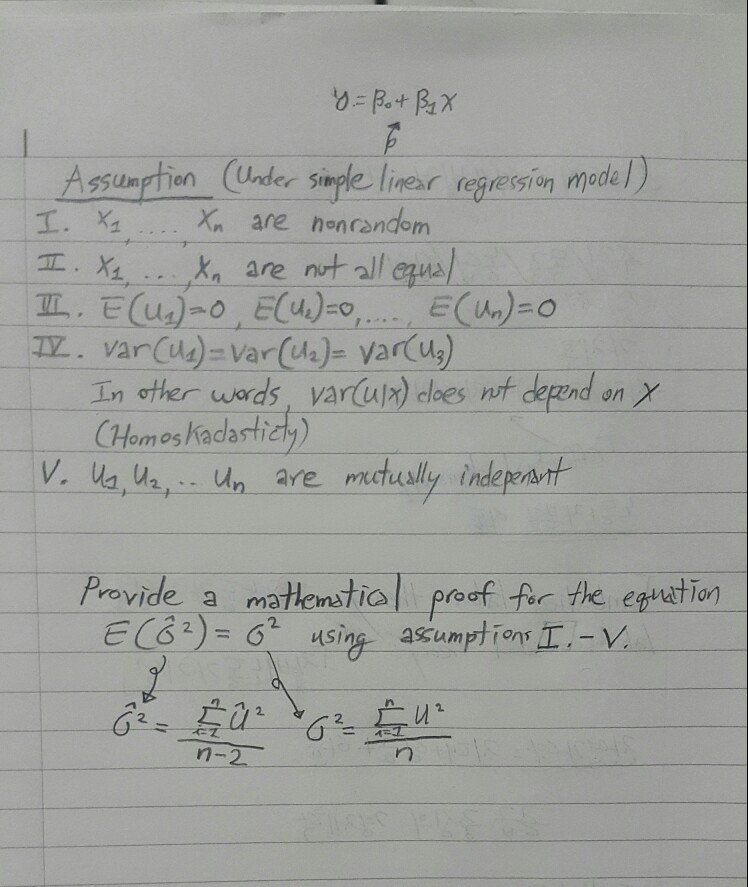 y = β₀ + β₁x
Assumption (Under simple linear regression model)
I. x₁, ...., xₙ are nonrandom
II. x₁, ..., xₙ are not all equal
III. E(u₁)=0, E(u₂)=0, ...., E(uₙ)=0
IV. var(u₁)=var(u₂)= var(u₃)
In other words, var(u|x) does not depend on x
(Homoskadasticty)
V. u₁, u₂, .. uₙ are mutually indepenant
Provide a mathematical proof for the equation
E(σ̂²) = σ² using assumptions I. - V.
σ̂² = Σⁿᵢ₌₁ û² / n-2 σ² = Σⁿᵢ₌₁ u² / n